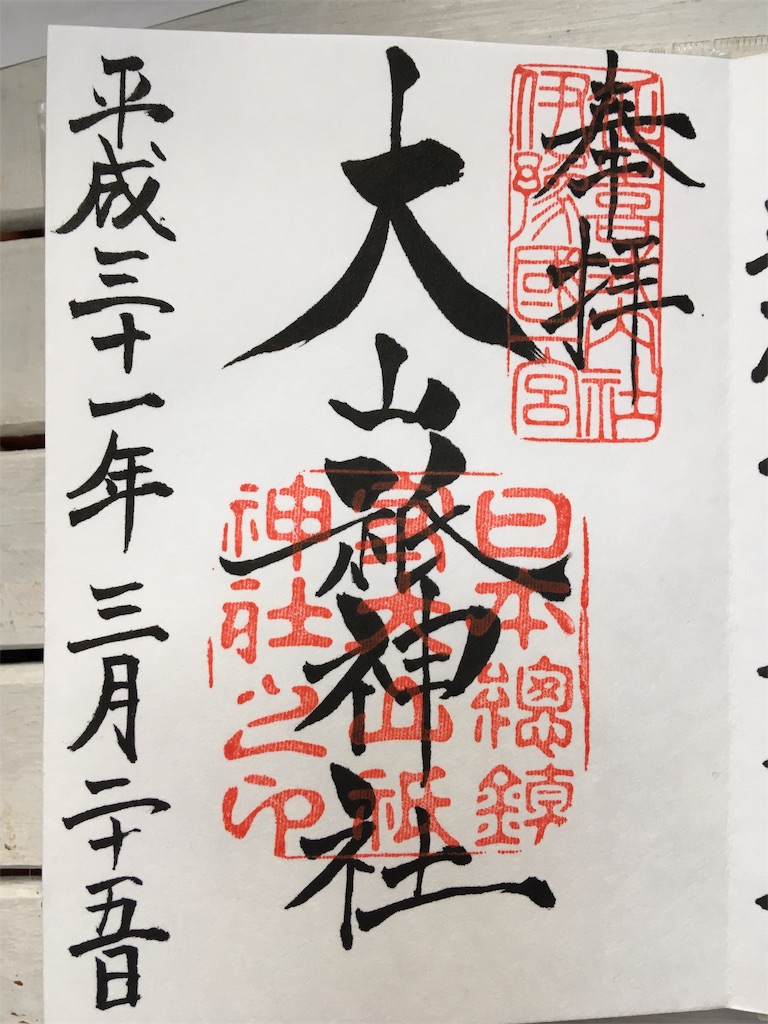 奉拝
伊豫國一宮
大山祇神社
日本總鎮
守大山祇
神社之印
平成三十一年三月二十五日